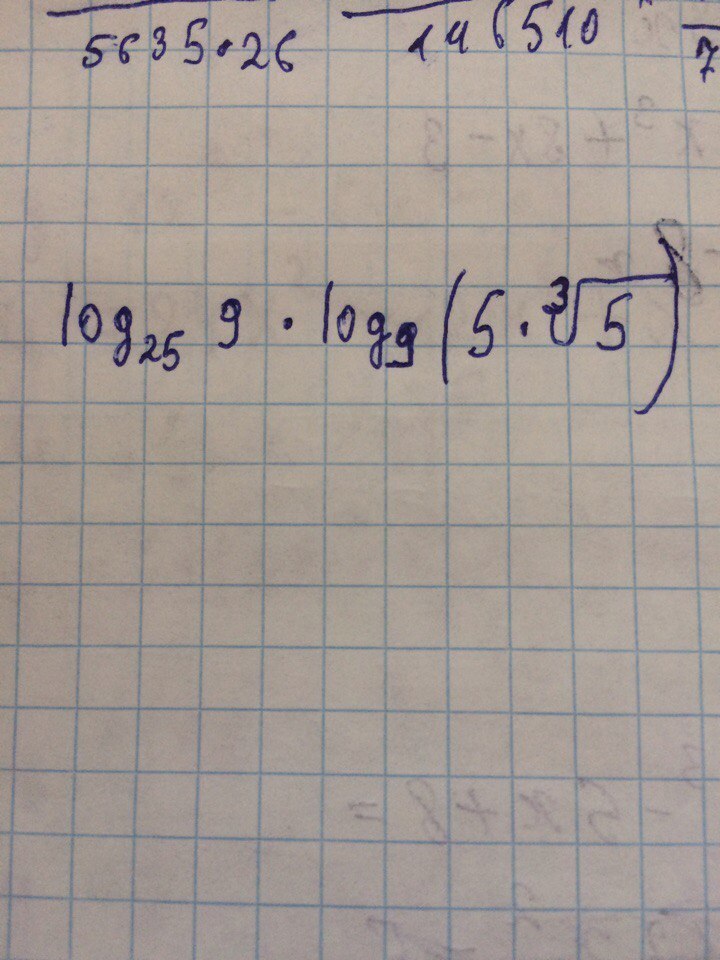 5635·26 146510 7
log₂₅ 9 · log₉ (5 · ∛5)